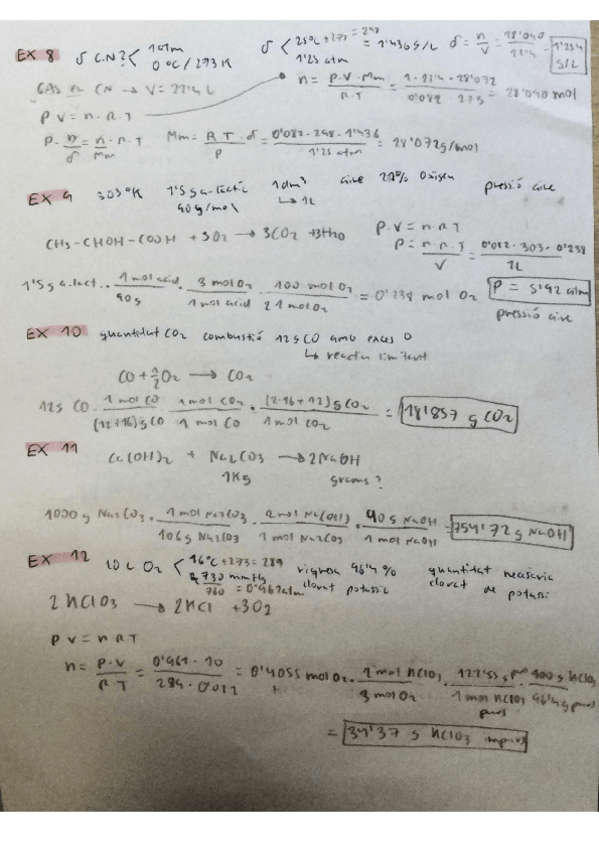 EX 8 δ C.N? < 1 atm
0ºC / 273 K
δ < 25ºC + 273 = 298
1'25 atm = 1'436 g/L δ = n/V = 28'040/22'4 = 1'254 g/L
GAS en CN → V = 22'4 L
P V = n · R · T
n = P·V·Mm / R·T = 1 · 22'4 · 28'072 / 0'082 · 273 = 28'040 mol
P · n/δ = n/Mm · R · T Mm = R T · δ / P = 0'082 · 298 · 1'436 / 1'25 atm = 28'072 g/mol
EX 9 303ºK 1'5 g a·lactic 1 dm³ aire 21% oxigen pressió aire
90 g/mol ↳ 1L
CH3 - CHOH - COOH + 3O2 → 3CO2 + 3H2O
P · V = n R T
P = n · R · T / V = 0'082 · 303 · 0'238 / 1L
1'5 g a.lact. · 1 mol acid / 90 g · 3 mol O2 / 1 mol acid · 100 mol O2 / 21 mol O2 = 0'238 mol O2
P = 5'92 atm
pressió aire
EX 10 quantitat CO2 combustió 12 g CO amb excés O
↳ reactiu limitant
CO + ½O2 → CO2
12 g CO · 1 mol CO / (12+16) g CO · 1 mol CO2 / 1 mol CO · (2·16+12) g CO2 / 1 mol CO2 = 18'857 g CO2
EX 11 Ca(OH)2 + Na2CO3 → 2NaOH
1Kg grams?
1000 g Na2CO3 · 1 mol Na2CO3 / 106 g Na2CO3 · 2 mol NaOH / 1 mol Na2CO3 · 40 g NaOH / 1 mol NaOH = 754'72 g NaOH
EX 12 10 L O2 < 16ºC + 273 = 289
730 mmHg / 760 = 0'961 atm
riquesa 96'4 % clorat potassic
quantitat necessaria clorat de potassi
2 KClO3 → 2KCl + 3O2
P V = n R T
n = P·V / R T = 0'961 · 10 / 289 · 0'082 = 0'4055 mol O2 · 2 mol KClO3 / 3 mol O2 · 122'55 g purs / 1 mol KClO3 purs · 100 g KClO3 / 96'4 g purs
= 34'37 g KClO3 impurs